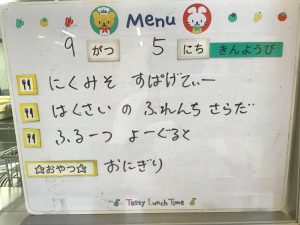 Menu
9 がつ 5 にち きんようび
にくみそ すぱげてぃー
はくさい の ふれんち さらだ
ふるーつ よーぐると
☆おやつ☆ おにぎり
Tasty Lunch Time